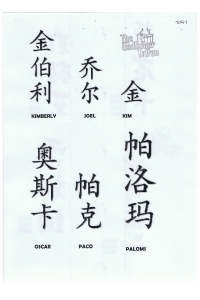 金伯利
乔尔
金
KIMBERLY
JOEL
KIM
奥斯卡
帕克
帕洛玛
OSCAR
PACO
PALOMS